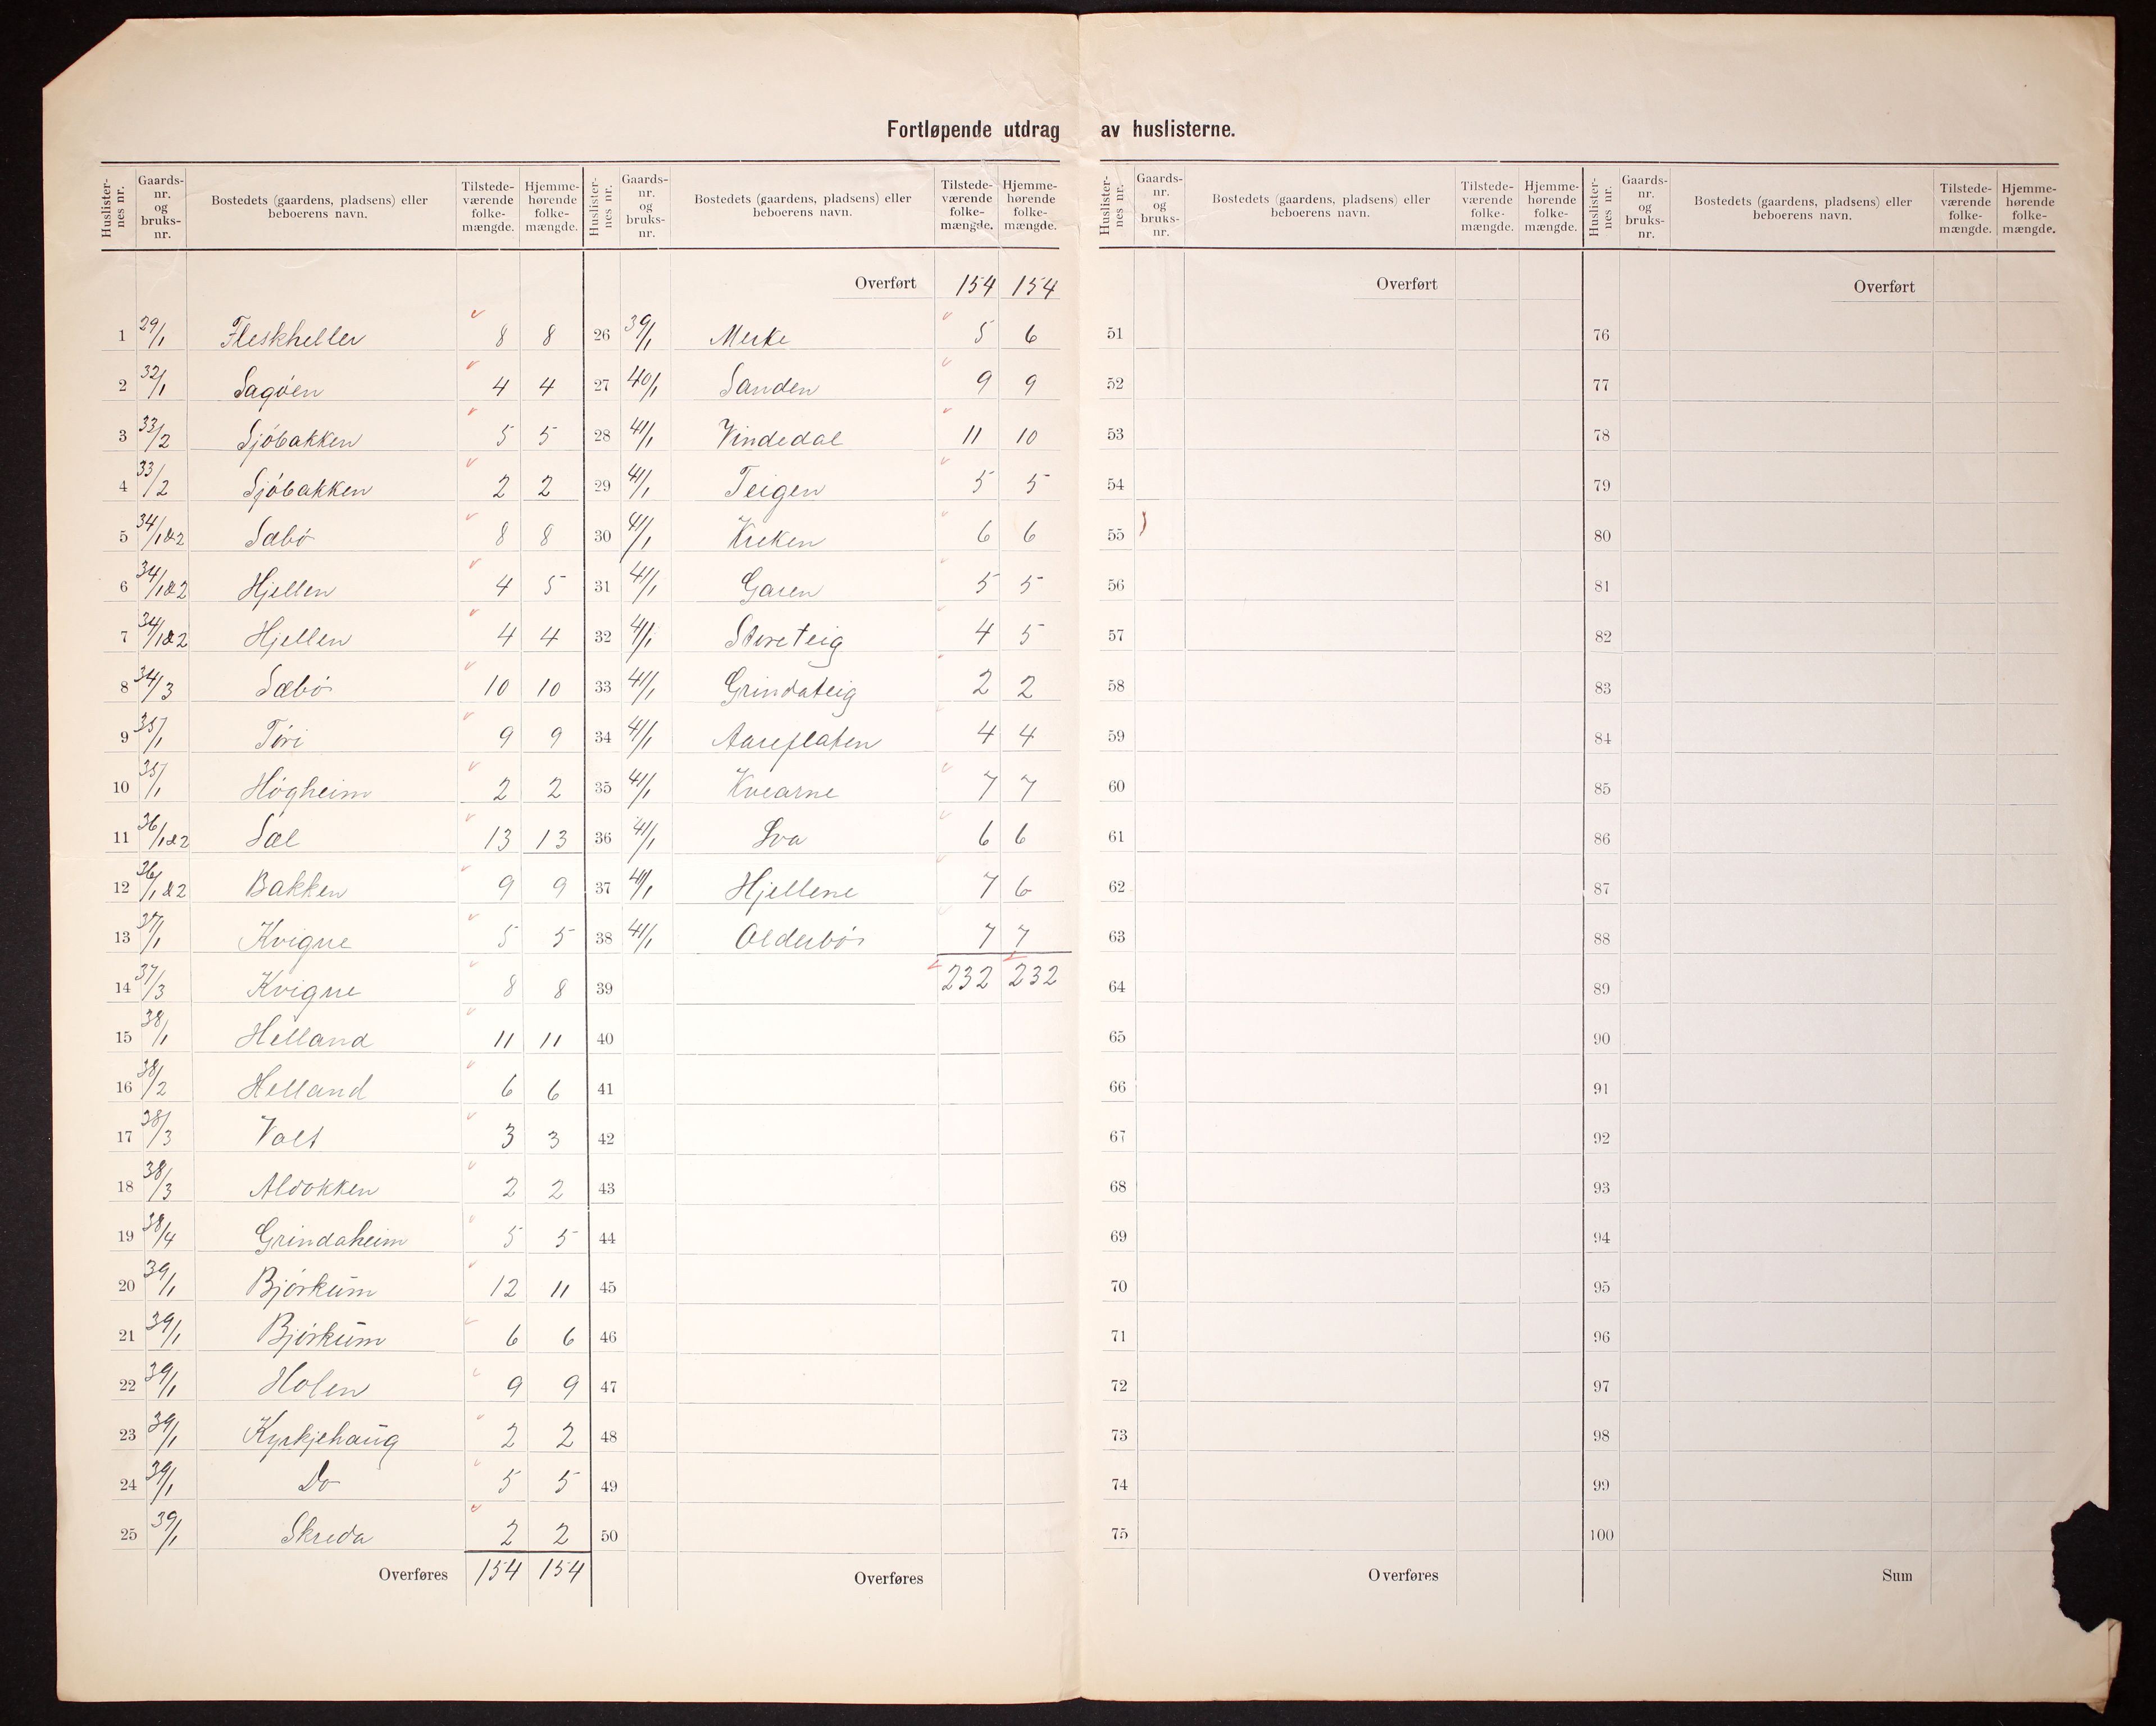 Fortløpende utdrag av huslisterne.
Huslister-nes nr. Gaards-nr. og bruks-nr. Bostedets (gaardens, pladsens) eller beboerens navn. Tilstede-værende folke-mængde. Hjemme-hørende folke-mængde.
1 29/1 Fleskheller 8 8
2 32/1 Sagøen 4 4
3 33/2 Sjøbakken 5 5
4 33/2 Sjøbakken 2 2
5 34/1&2 Sæbø 8 8
6 34/1&2 Hjellen 4 5
7 34/1&2 Hjellen 4 4
8 34/3 Sæbø 10 10
9 35/1 Tøri 9 9
10 35/1 Høgheim 2 2
11 36/1&2 Sæl 13 13
12 36/1&2 Bakken 9 9
13 37/1 Kvigne 5 5
14 37/3 Kvigne 8 8
15 38/1 Helland 11 11
16 38/2 Helland 6 6
17 38/3 Volt 3 3
18 38/3 Aldokken 2 2
19 38/4 Grindaheim 5 5
20 39/1 Bjørkum 12 11
21 39/1 Bjørkum 6 6
22 39/1 Holen 9 9
23 39/1 Kyrkjehaug 2 2
24 39/1 Do 5 5
25 39/1 Skreda 2 2
Overføres 154 154
Huslister-nes nr. Gaards-nr. og bruks-nr. Bostedets (gaardens, pladsens) eller beboerens navn. Tilstede-værende folke-mængde. Hjemme-hørende folke-mængde.
Overført 154 154
26 39/1 Merke 5 6
27 40/1 Sanden 9 9
28 41/1 Vindedal 11 10
29 41/1 Teigen 5 5
30 41/1 Kreken 6 6
31 41/1 Garen 5 5
32 41/1 Storeteig 4 5
33 41/1 Grindateig 2 2
34 41/1 Aareflaten 4 4
35 41/1 Kvearne 7 7
36 41/1 Sva 6 6
37 41/1 Hjellene 7 6
38 41/1 Olderbø 7 7
39 232 232
40
41
42
43
44
45
46
47
48
49
50
Overføres
Huslister-nes nr. Gaards-nr. og bruks-nr. Bostedets (gaardens, pladsens) eller beboerens navn. Tilstede-værende folke-mængde. Hjemme-hørende folke-mængde.
Overført
51
52
53
54
55
56
57
58
59
60
61
62
63
64
65
66
67
68
69
70
71
72
73
74
75
Overføres
Huslister-nes nr. Gaards-nr. og bruks-nr. Bostedets (gaardens, pladsens) eller beboerens navn. Tilstede-værende folke-mængde. Hjemme-hørende folke-mængde.
Overført
76
77
78
79
80
81
82
83
84
85
86
87
88
89
90
91
92
93
94
95
96
97
98
99
100
Sum